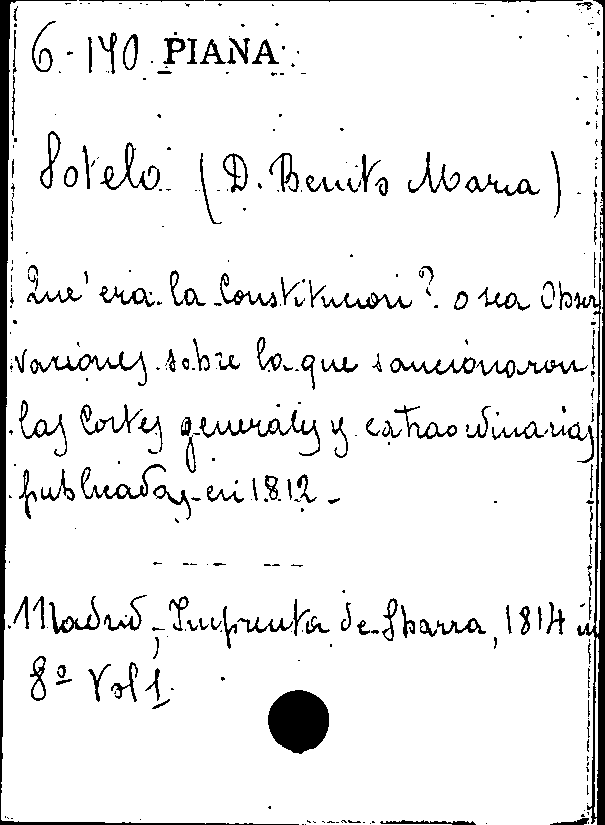 6-140 PIANA
Sotelo (D. Benito Maria)
Que' era la Constitucion? o sea Obser
vaciones sobre la que sancionaron
las Cortes generales y extraordinarias
publicadas en 1812 -
Madrid, Imprenta de Ibarra, 1814 in
8º Vol 1